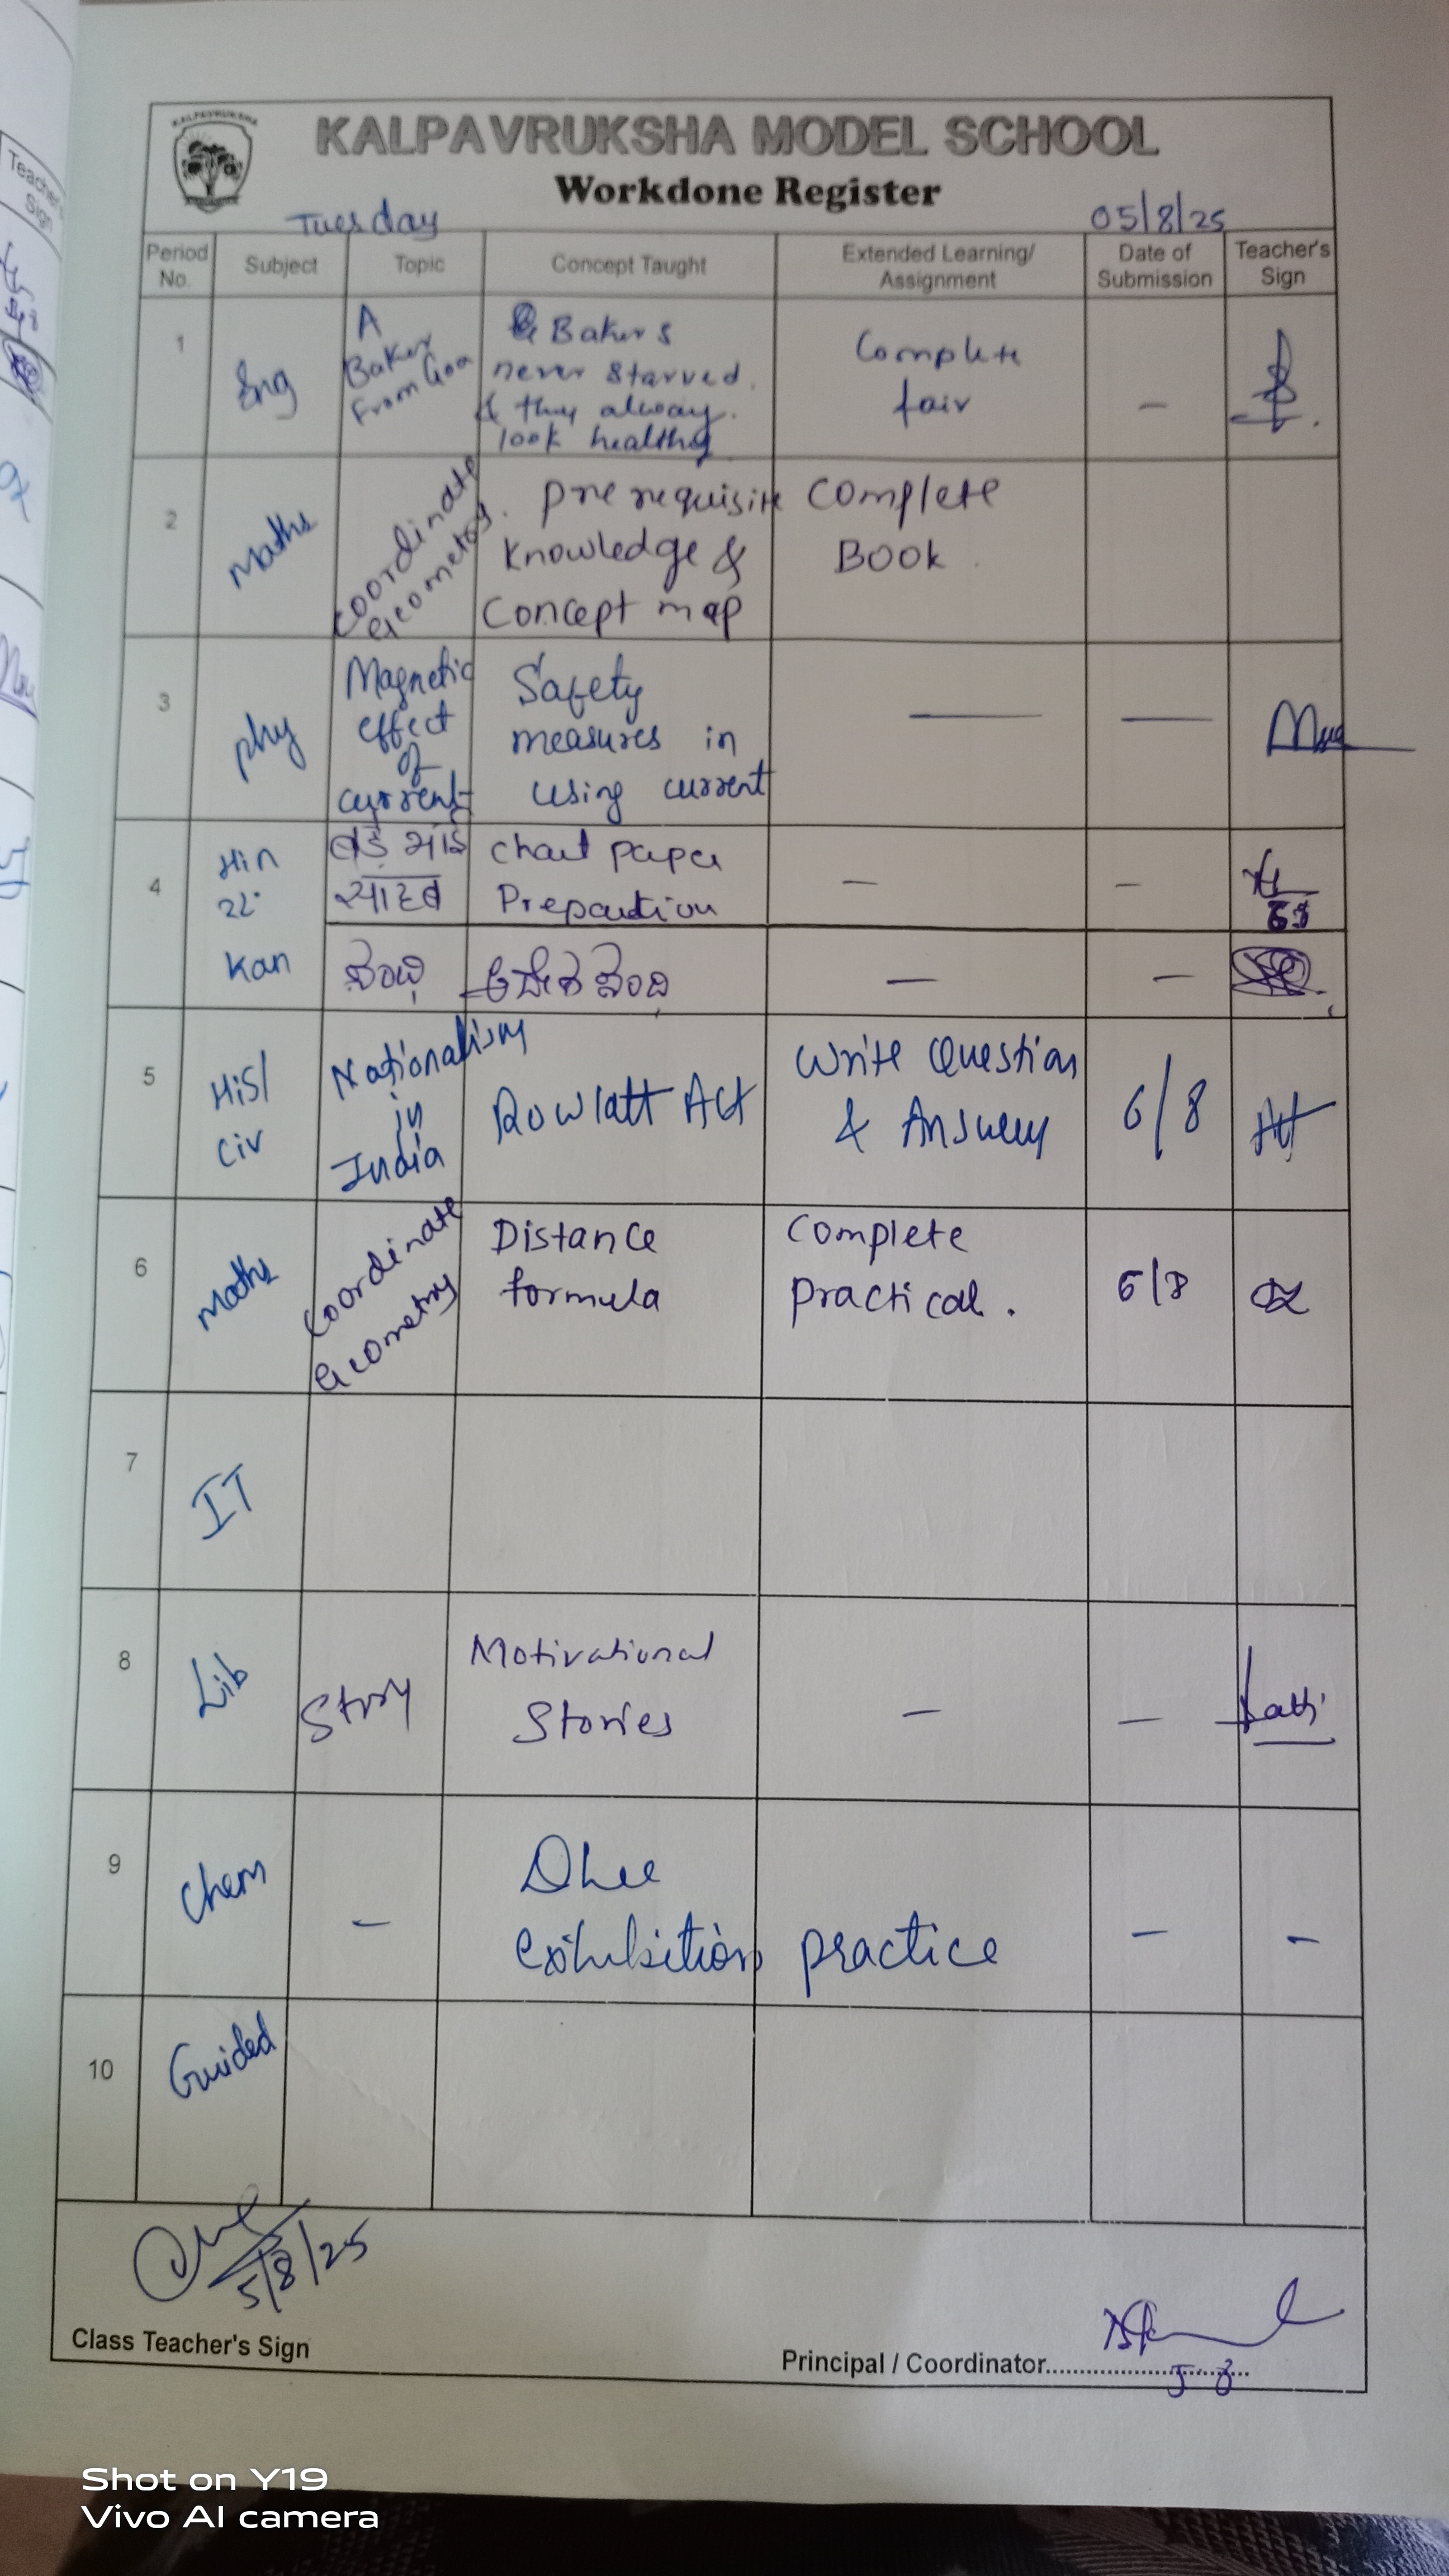 KALPAVRUKSHA
KALPAVRUKSHA MODEL SCHOOL
Workdone Register
Tuesday 05/8/25
Period No. Subject Topic Concept Taught Extended Learning/ Assignment Date of Submission Teacher's Sign
1 Eng A Baker From Goa Bakers never starved. & they alway. look healthy Complete fair –
2 Maths Coordinate Geometry. Prerequisite Knowledge & Concept map Complete Book.
3 phy Magnetic effect of current Safety measures in using current — —
4 Hin बड़े भाई साहब Chart paper Preparation – –
Kan ಸಂಧಿ ಆದೇಶ ಸಂಧಿ – –
5 His/ Civ Nationalism in India Rowlatt Act Write Question & Answer 6/8
6 Maths Coordinate Geometry Distance formula Complete practical. 6/8
7 IT
8 Lib Story Motivational Stories – –
9 Chem – exihibition practice – –
10 Guided
5/8/25
Class Teacher's Sign
Principal / Coordinator
5-8
Teacher's Sign
Shot on Y19
Vivo AI camera